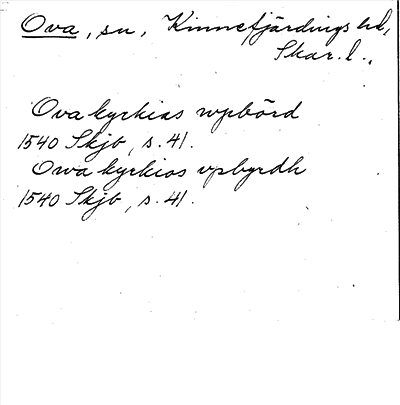 Ova, sn, Kinnefjärdings hd,
Skar. l.,
Ova kyrkias wpbörd
1540 Skjb, s. 41.
Owa kyrkios vpbyrdh
1540 Skjb, s. 41.